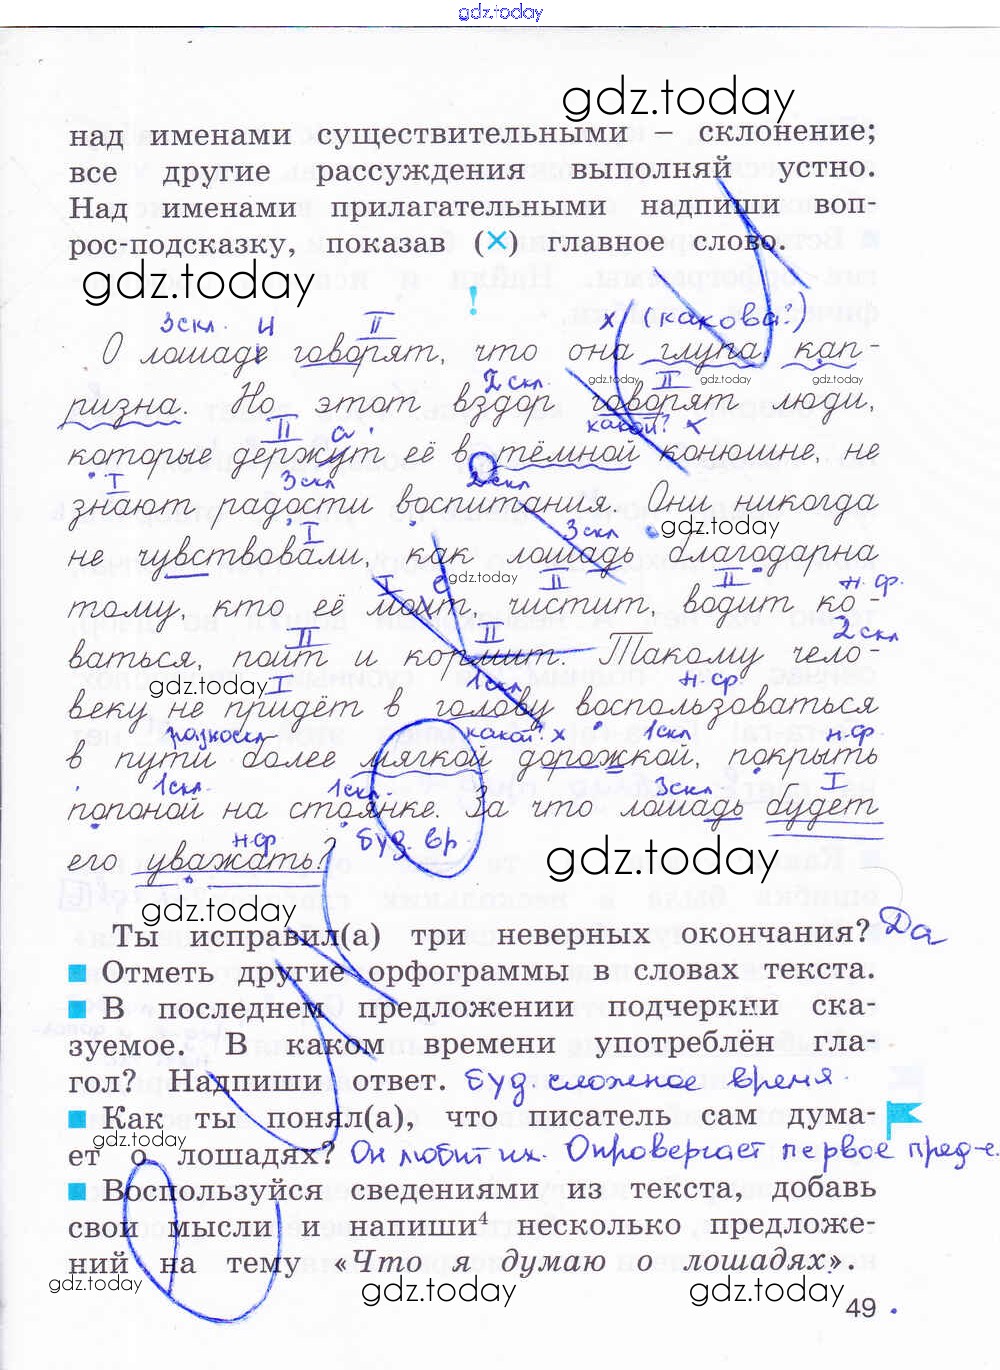 gdz.today
gdz.today
над именами существительными – склонение;
все другие рассуждения выполняй устно.
Над именами прилагательными надпиши воп-
рос-подсказку, показав (×) главное слово.
gdz.today
!
3скл. и II х (какова?)
О лошаде говорят, что она глупа, кап-
gdz.today gdz.today
2скл II
ризна. Но этот вздор говорят люди,
II а какой? х
которые держут её в тёмной конюшне, не
I 3скл 2скл
знают радости воспитания. Они никогда
gdz.today
I 3скл
не чувствовали, как лошадь благодарна
gdz.today
I е II II н.ф.
тому, кто её моит, чистит, водит ко-
II II 2скл
ваться, поит и кормит. Такому чело-
gdz.today
I 1скл н.ф
веку не придёт в голову воспользоваться
какой? х 1скл н.ф
в пути более мягкой дорожкой, покрыть
1скл 1скл. 3скл I
попоной на стоянке. За что лошадь будет
н.ф буд. вр
его уважать?
gdz.today
gdz.today
Ты исправил(а) три неверных окончания? Да
Отметь другие орфограммы в словах текста.
В последнем предложении подчеркни ска-
зуемое. В каком времени употреблён гла-
гол? Надпиши ответ. буд. сложное время.
Как ты понял(а), что писатель сам дума-
gdz.today
ет о лошадях? Он любит их. Опровергает первое пред-е.
Воспользуйся сведениями из текста, добавь
свои мысли и напиши⁴ несколько предложе-
ний на тему «Что я думаю о лошадях».
gdz.today gdz.today gdz.today
49